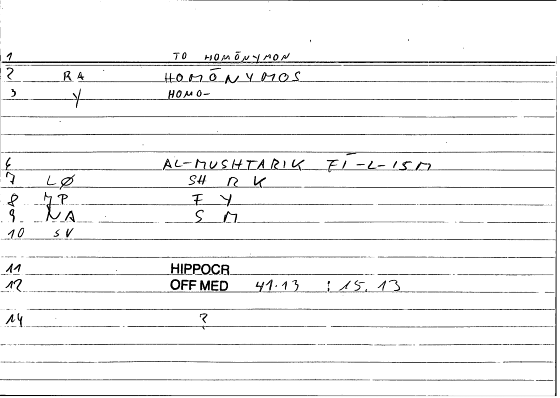 1 TO HOMŌNYMON
2 RA HOMŌNYMOS
3 Y HOMO-
6 AL-MUSHTARIK FĪ-L-ISM
7 LØ SH R K
8 JP F Y
9 NA S M
10 SV
11 HIPPOCR
12 OFF MED 41.13 : 15.13
14 ?